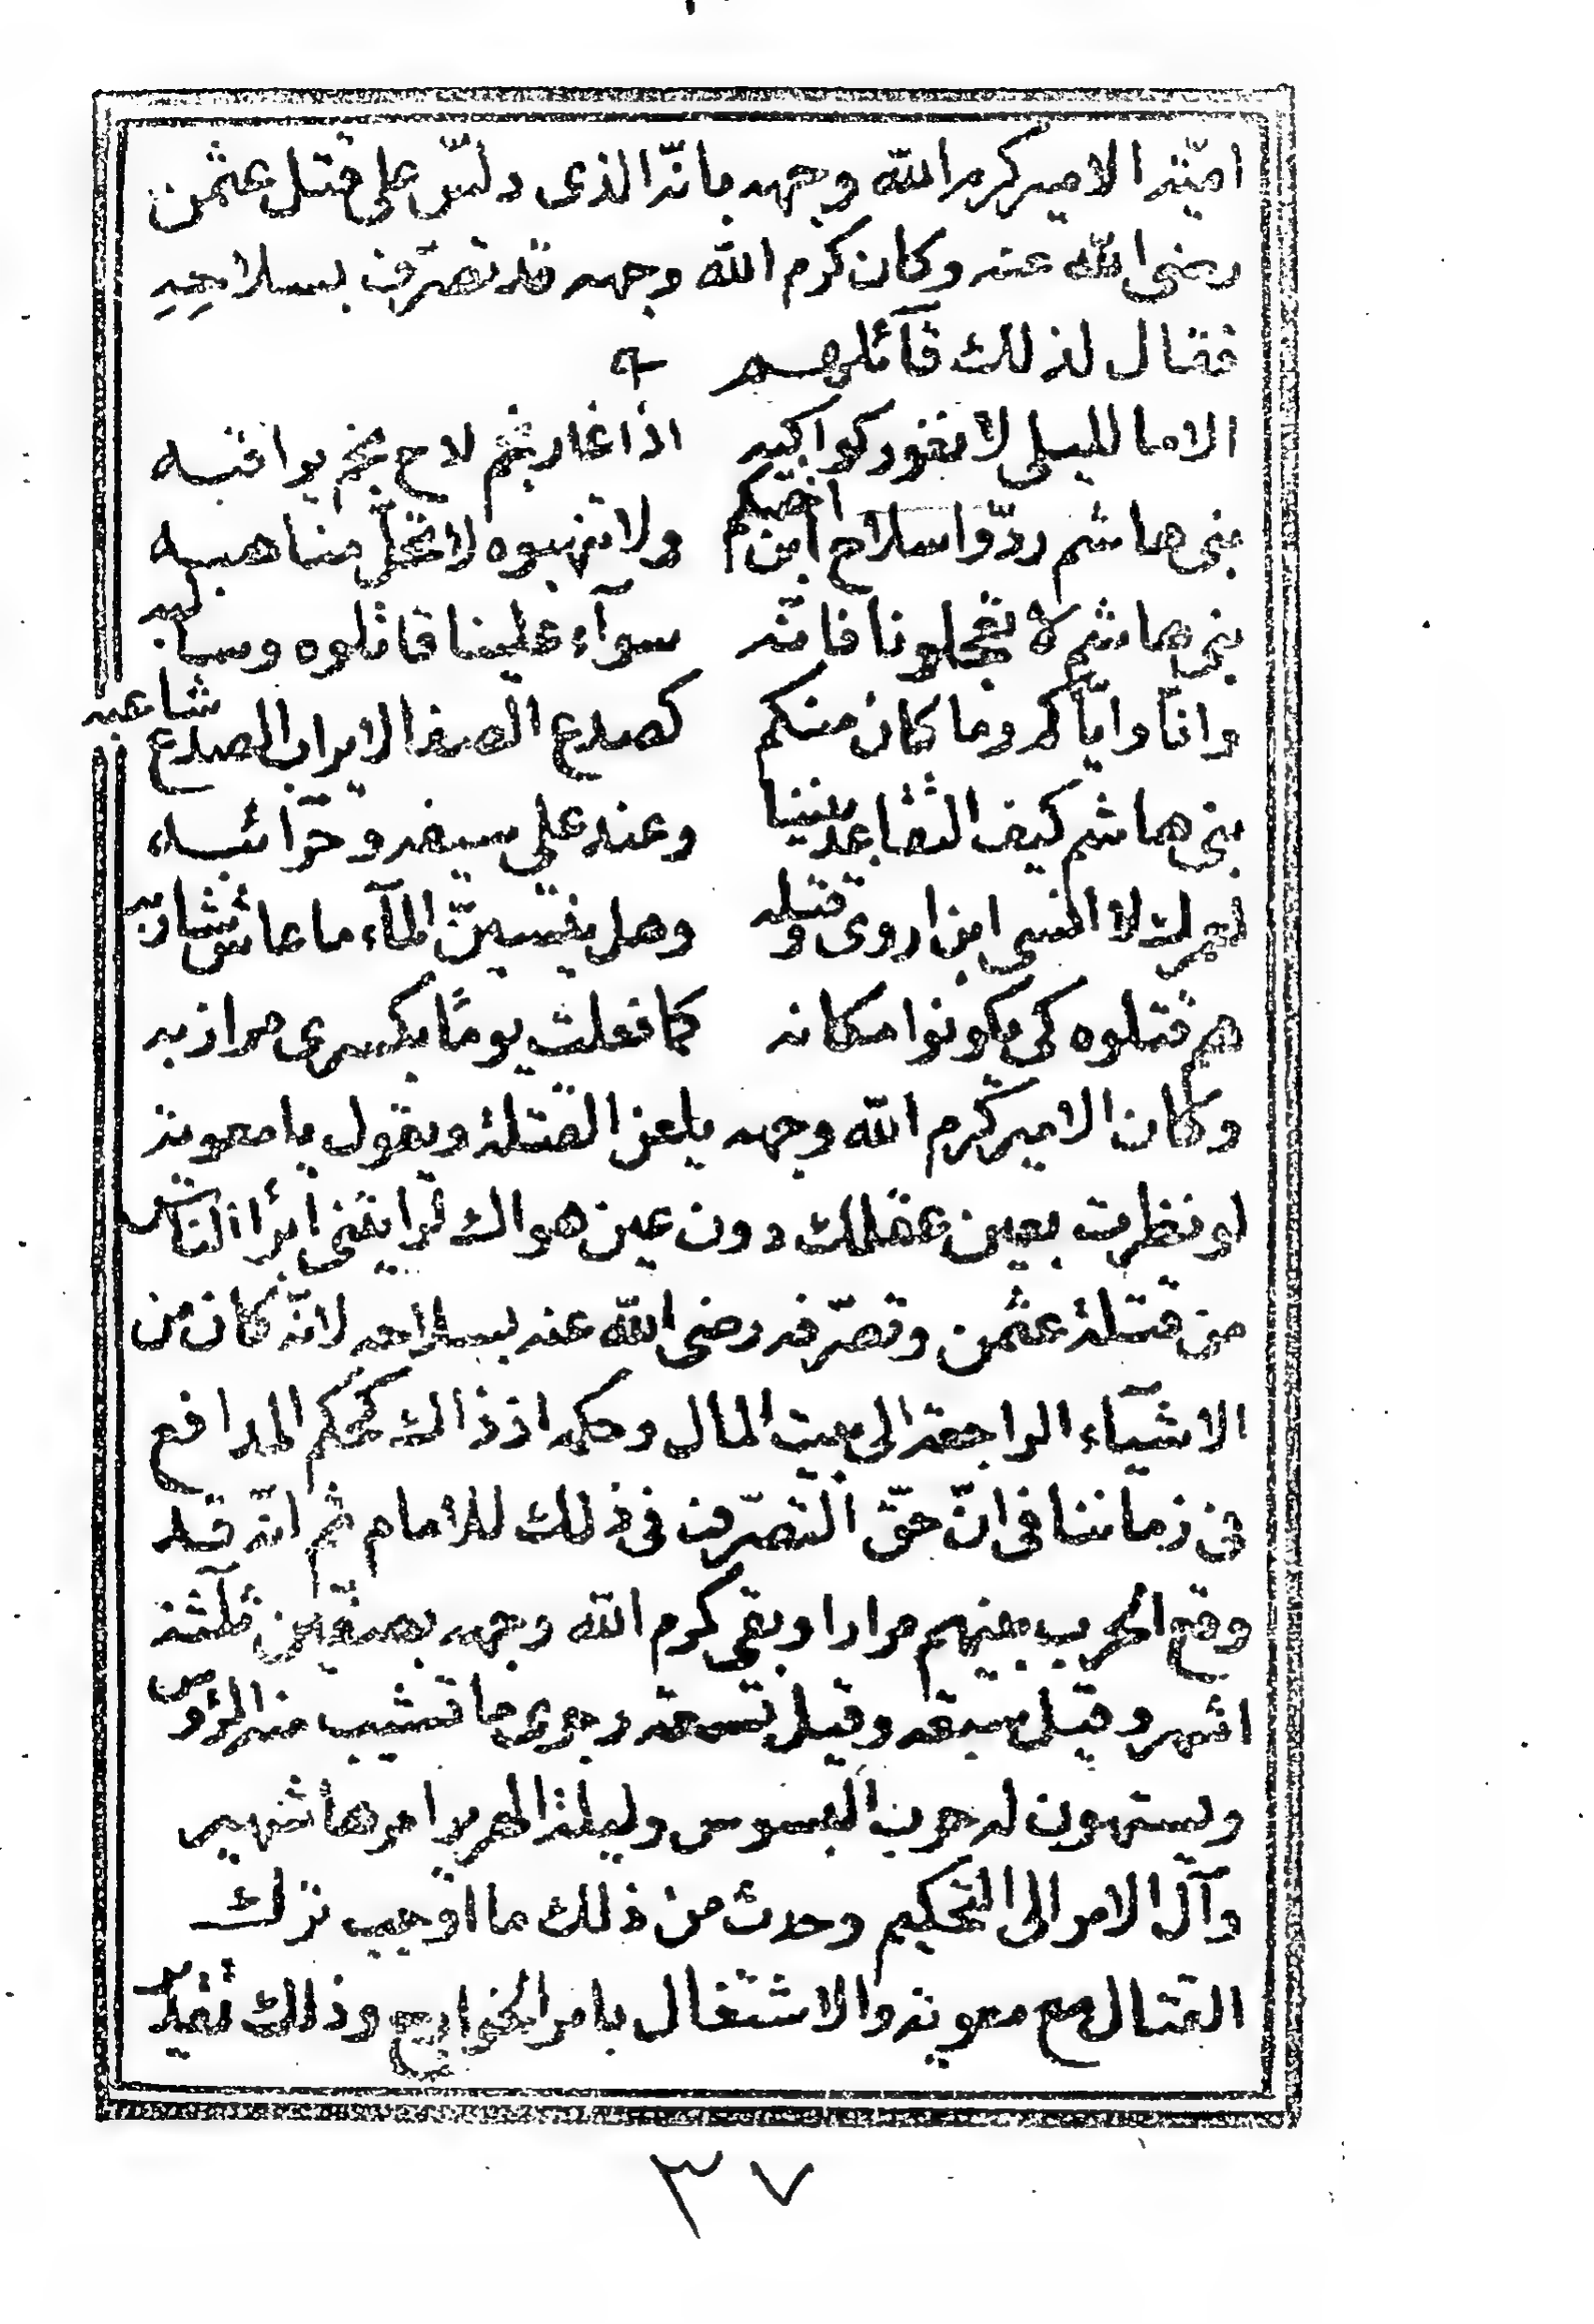 اميّة الامير كرم الله وجهه بانّه الذى دلسّ على قتل عثمن
رضى الله عنه وكان كرم الله وجهه قد تصرّف بسلاحِهِ
فقال لذلك قآئلهم
الاما لليلى لا تغور كواكبه اذا غار نجم لاح نجم يراقبه
بنى هاشم ردّوا سلاح ابن اختكم ولا تنهبوه لا تحلّ مناهبه
بنى هاشم لا تعجلونا فانّه سوآء علينا قاتلوه وسالبه
وانّا وايّاكم وما كان منكم كصدع الصفا لا يراب الصدع شاعبه
بنى هاشم كيف التقاعد بيننا وعند على سيفه وحرآئبه
لعمرك لا انسى ابن اروى وقتله وهل ينسينّ المآء ما عاش شاربه
هم قتلوه كى يكونوا مكانه كما فعلت يومًا بكسرى مرازبه
وكان الامير كرم الله وجهه يلعن القتلة ويقول يا معوية
لو نظرت بعين عقلك دون عين هواك لرايتنى ابرا الناس
من قتلة عثمن وتصرّفه رضى الله عنه بسلاحه لانّه كان من
الاشيآء الراجعة الى بيت المال وحكمه اذ ذاك كحكم المدافع
فى زماننا فى انّ حقّ التصرّف فى ذلك للامام ثم انّه قد
وقع الحرب بينهم مرارا وبقى كرم الله وجهه بصفين ثلثة
اشهر وقيل سبعة وقيل تسعة وجرى ما تشيب منه الرؤس
ويستهون له حرب البسوس وليلة الهرير امرها شهير
وآل الامر الى التحكيم وحدث من ذلك ما اوجب ترك
القتال مع معوية والاشتغال بامر الخوارج وذلك تقدير
٣٧